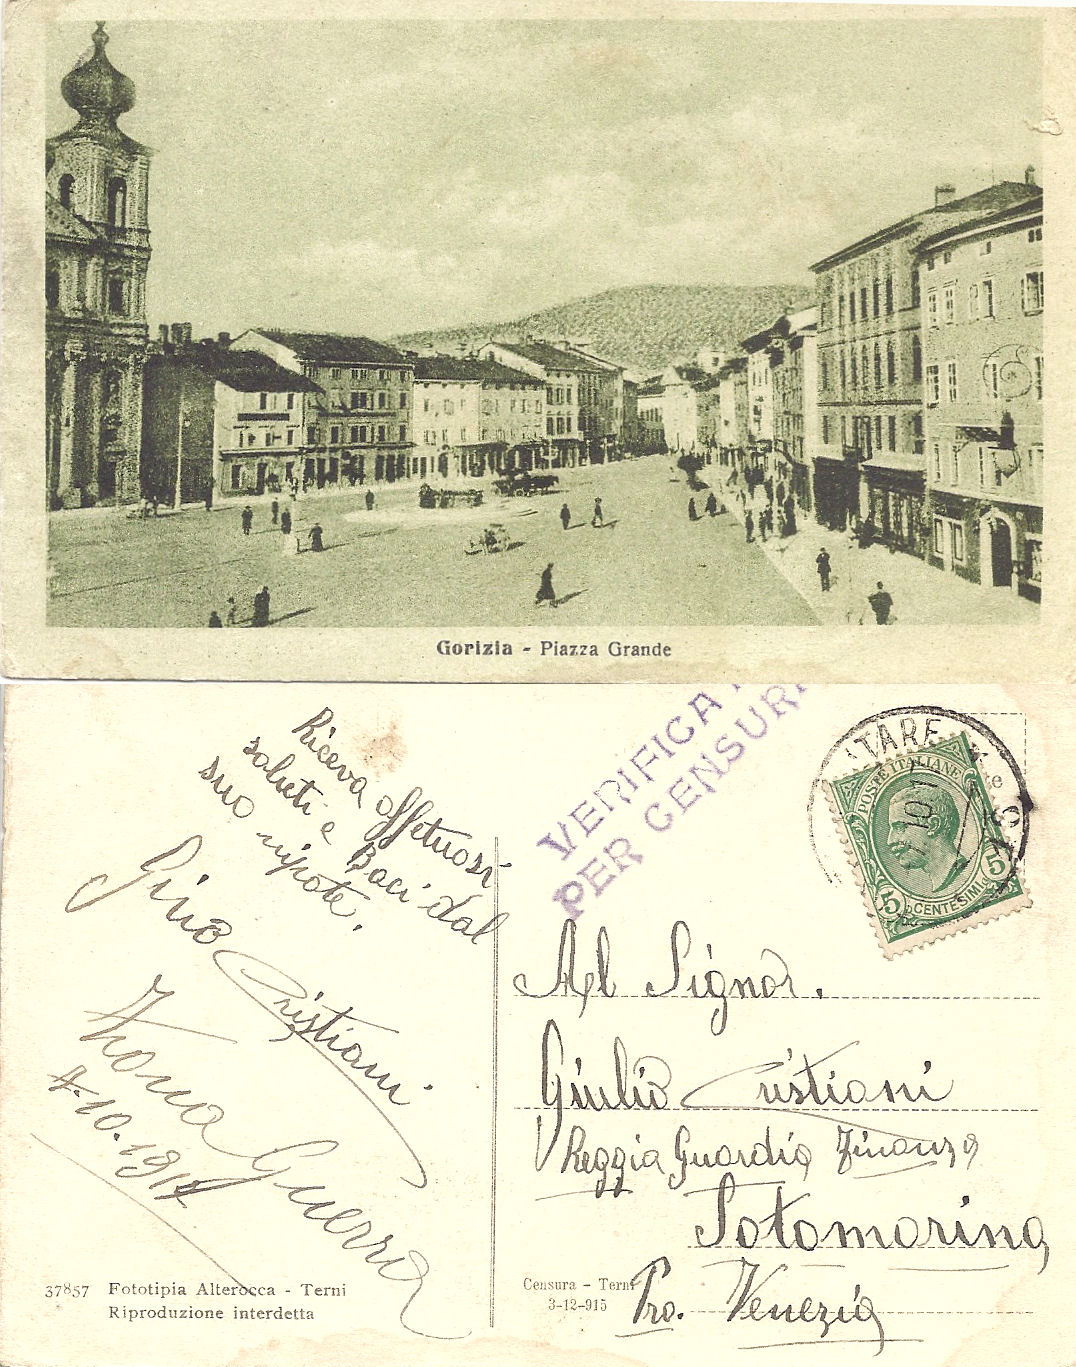 Gorizia - Piazza Grande
Riceva affetuosi
saluti e Baci dal
suo nipote.
Gino Cristiani
Zona Guerra
7.10.1917
37857 Fototipia Alterocca - Terni
Riproduzione interdetta
VERIFICA
PER CENSUR
ITARE
POSTE ITALIANE
5 CENTESIMI 5
Al Signor.
Giulio Cristiani
Reggia Guardia Finanza
Sotomarina
Pro. Venezia
Censura - Terni
3-12-915